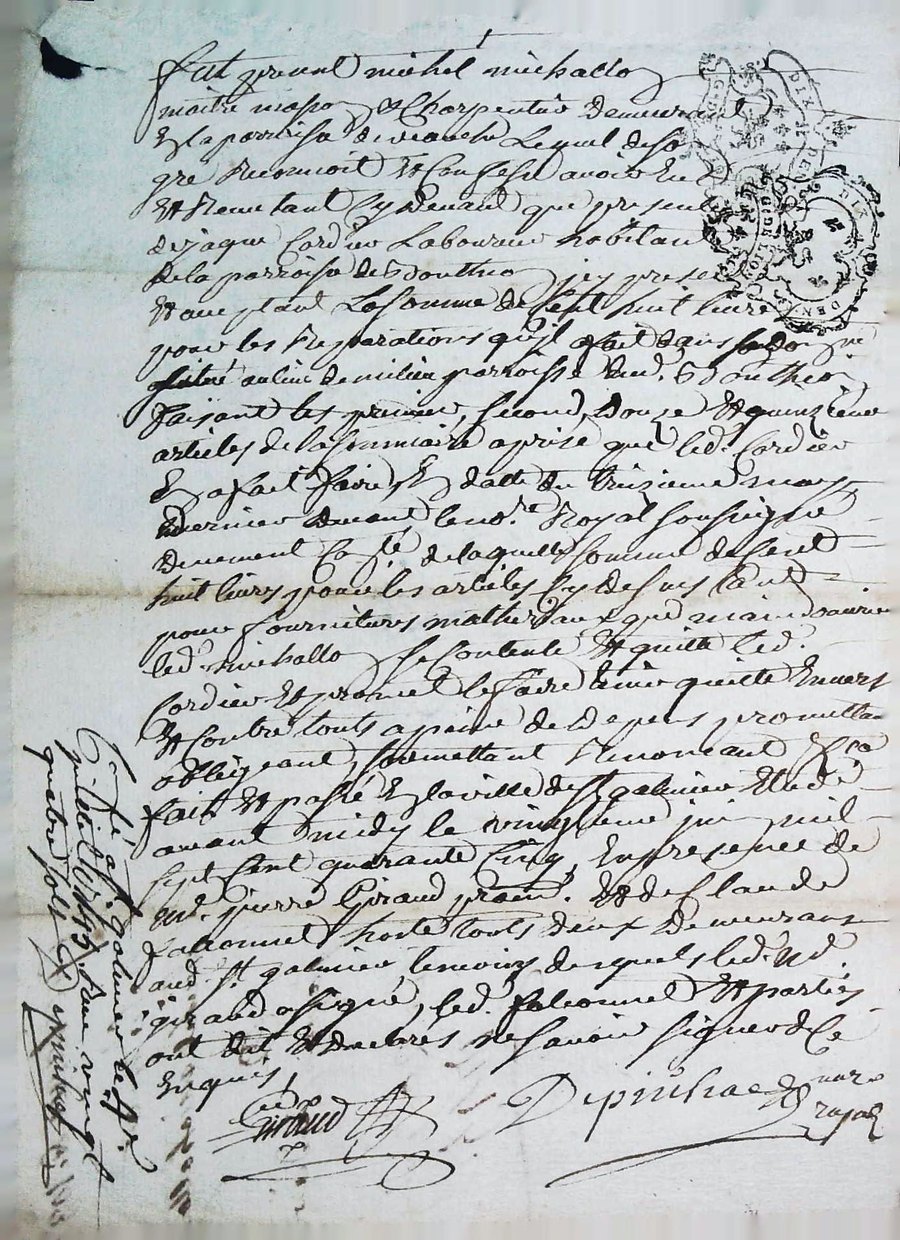 fut present michel michallo
maitre masson & Charpentier demeurant
En la parroisse de veauche Lequel de so
gre Reconnoit & Confesse avoir Eu
& Receu tant Cy devant que presen
de jaque Cordier Laboureur habitan
de la parroisse de Bouttheo jcy presen
& acceptant La somme de Cent huit livre
pour les Reparations qu'jl a fait dans
au lieu de milieu parroisse dud. Bouttheo
faisant les premier, second, douze & quinzieme
articles de la sommaire aprise que led. Cordier
En a fait faire En datte du treizieme mars
dernier devant le no.re Royal soussigné
deuement Co.lé de laquelle somme de Cent
huit livres pour les articles Cy dessus tant
pour fournitures matheriaux que maindoeuvre
led. michallo se Contente & quitte led.
Cordier & promet le faire tenir quitte Envers
& Contre touts a peine de Depens promettan
obligeant, soumettant Renonceant
fait & passé En la ville de St galmier Etude
avant midy le vingtieme jui mil
sept Cent quarante Cinq, En presence de
Me. pierre Giraud pratn. & de Claude
falconnet hoste touts deux Demeurans
aud St. galmier temoins desquels led. Me.
giraud a signé, led. falconnet & parties
ont dit & declarés ne savoir signer de Ce
Enquis,
Giraud
Depinhac
no.re
royal
C.lé a St. galmier le
1745 Receu vingt
quatre sols